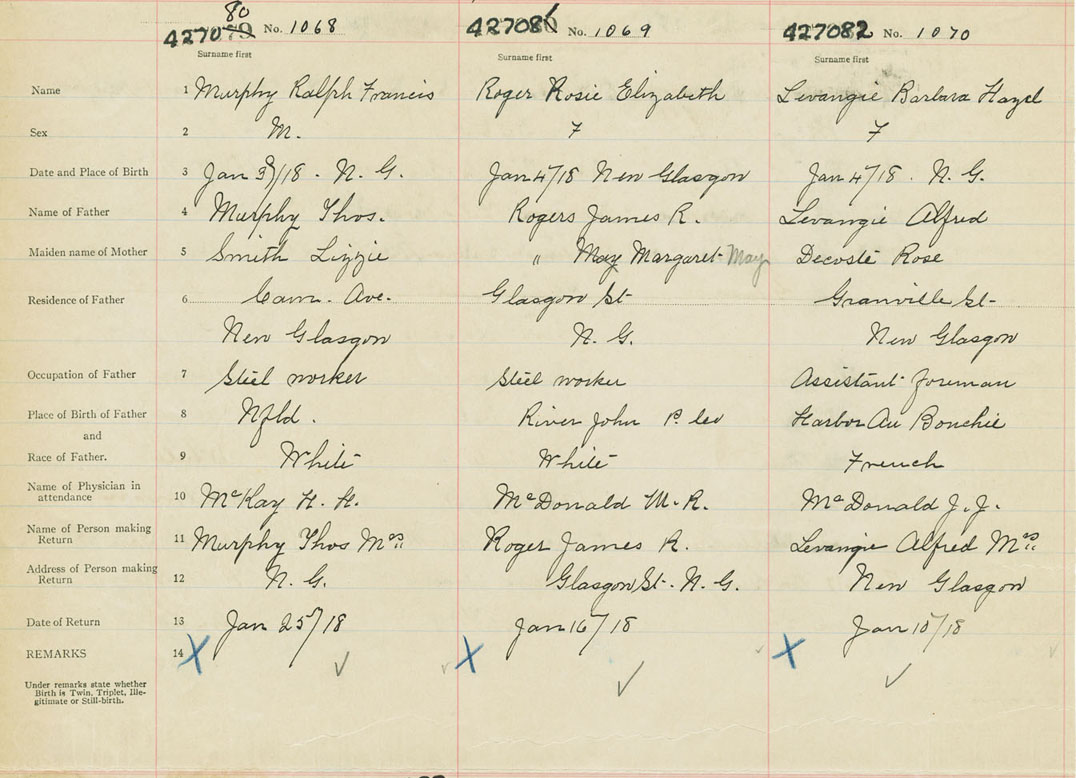 80
427079 No. 1068 427081 No. 1069 427082 No. 1070
Surname first Surname first Surname first
Name 1 Murphy Ralph Francis Roger Rosie Elizabeth Levangie Barbara Hazel
Sex 2 M. F F
Date and Place of Birth 3 Jan 3/18. N. G. Jan 4/18 New Glasgow Jan 4/18. N. G.
Name of Father 4 Murphy Thos. Rogers James R. Levangie Alfred
Maiden name of Mother 5 Smith Lizzie " May Margaret May Decoste Rose
Residence of Father 6 Cam. Ave. Glasgow St Granville St
New Glasgow N. G. New Glasgow
Occupation of Father 7 Steel worker Steel worker Assistant foreman
Place of Birth of Father 8 Nfld. River John P. Co Harbor Au Bouchie
and
Race of Father. 9 White White French
Name of Physician in
attendance 10 McKay H. H. McDonald M. R. McDonald J. J.
Name of Person making
Return 11 Murphy Thos Mrs Roger James R. Levangie Alfred Mrs
Address of Person making
Return 12 N. G. Glasgow St. N. G. New Glasgow
Date of Return 13 Jan 25/18 Jan 16/18 Jan 15/18
REMARKS 14 X X X
Under remarks state whether
Birth is Twin, Triplet, Ille-
gitimate or Still-birth.